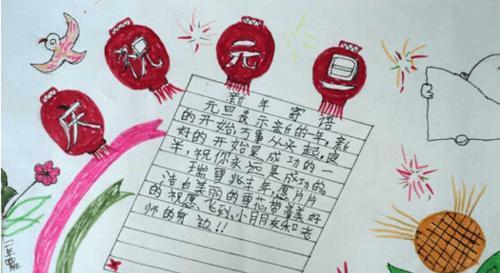 庆祝元旦
新年寄语
元旦表示新的一年,新
的开始,万事从头起,良
好的开始是成功的一
半,祝你永远是成功的
瑞雪兆丰年,愿片片
洁白美丽的雪花带着美好
的祝愿飞到小朋友和老
师的身边!!